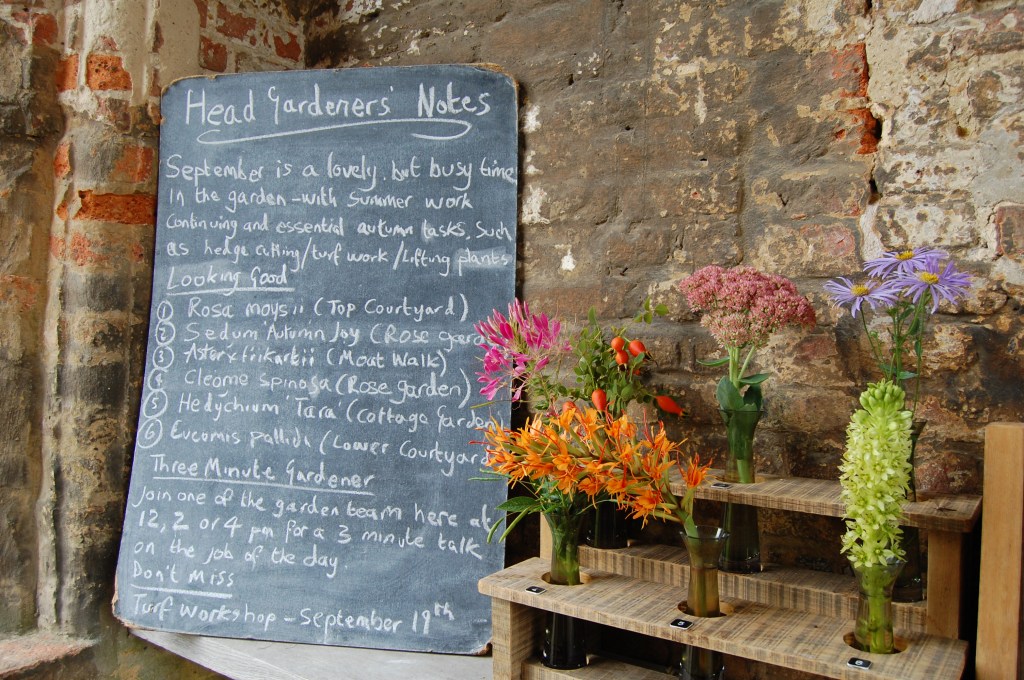 Head Gardeners' Notes
September is a lovely, but busy time
in the garden - with summer work
continuing and essential autumn tasks, such
as hedge cutting/turf work/lifting plants
Looking Good
1 Rosa moysii (Top Courtyard)
2 Sedum 'Autumn Joy' (Rose garde
3 Aster x frikartii (Moat Walk)
4 Cleome spinosa (Rose garden)
5 Hedychium 'Tara' (Cottage Garden
6 Eucomis pallidi (Lower Courtyard
Three Minute Gardener
Join one of the garden team here at
12, 2 or 4 pm for a 3 minute talk
on the job of the day
Don't Miss
Turf Workshop - September 19th